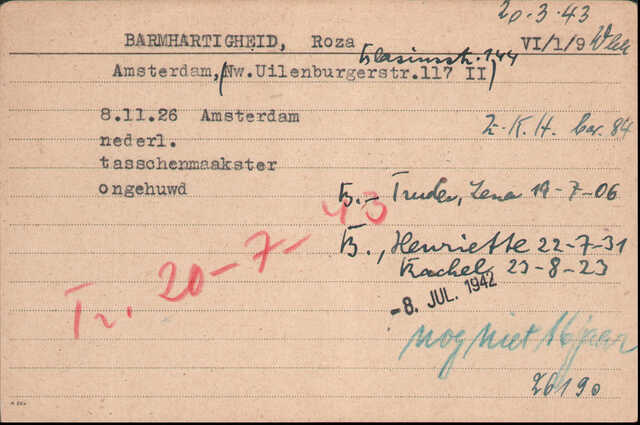 20.3.43
BARMHARTIGHEID, Roza VI/1/9 Wbk
Blasiusstr. 144
Amsterdam, (Nw.Uilenburgerstr.117 II)
8.11.26 Amsterdam
Z.K.H. bar. 84
nederl.
tasschenmaakster
ongehuwd
B.- Truder, Lena 19-7-06
B., Henriette 22-7-31
Rachel 23-8-23
Tr. 20-7-43
-8. JUL. 1942
nog niet 16 jaar
26190